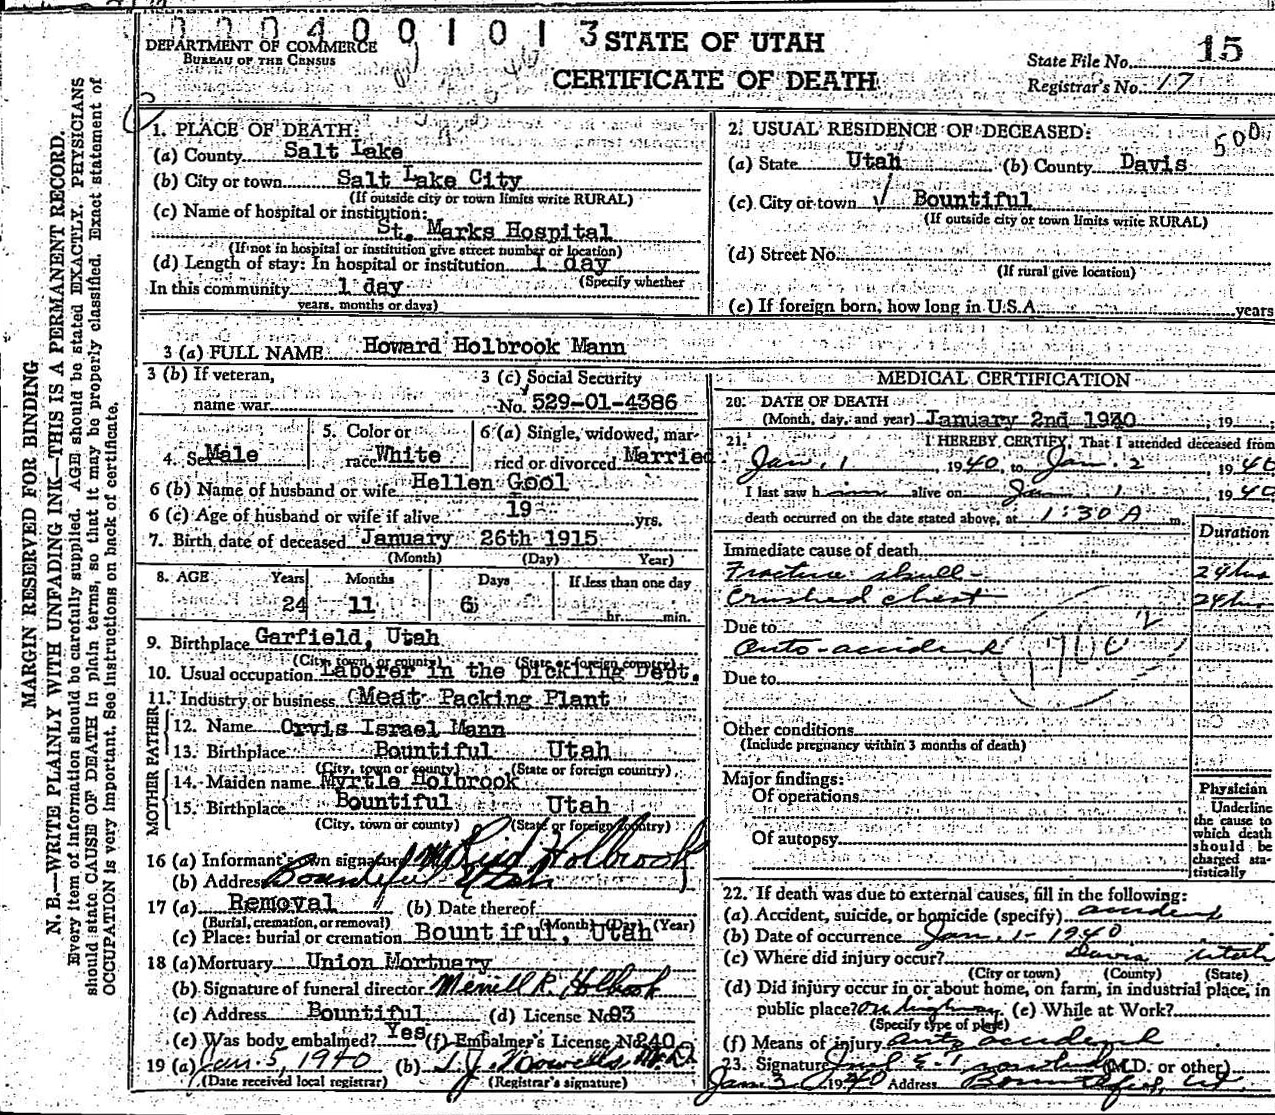 000400101 3
DEPARTMENT OF COMMERCE
BUREAU OF THE CENSUS
STATE OF UTAH
CERTIFICATE OF DEATH
State File No. 15
Registrar's No. 17
MARGIN RESERVED FOR BINDING
N. B.—WRITE PLAINLY WITH UNFADING INK—THIS IS A PERMANENT RECORD.
Every item of information should be carefully supplied. AGE should be stated EXACTLY. PHYSICIANS
should state CAUSE OF DEATH in plain terms, so that it may be properly classified. Exact statement of
OCCUPATION is very important. See instructions on back of certificate.
1. PLACE OF DEATH:
(a) County Salt Lake
(b) City or town Salt Lake City
(If outside city or town limits write RURAL)
(c) Name of hospital or institution:
St. Marks Hospital
(If not in hospital or institution give street number or location)
(d) Length of stay: In hospital or institution 1 day
(Specify whether
In this community 1 day
years, months or days)
2. USUAL RESIDENCE OF DECEASED:
500
(a) State Utah (b) County Davis
(c) City or town Bountiful
(If outside city or town limits write RURAL)
(d) Street No.
(If rural give location)
(e) If foreign born, how long in U.S.A. years
3 (a) FULL NAME Howard Holbrook Mann
3 (b) If veteran,
name war
3 (c) Social Security
No. 529-01-4386
4. Sex Male
5. Color or
race White
6 (a) Single, widowed, mar-
ried or divorced Married
6 (b) Name of husband or wife Hellen Gool
6 (c) Age of husband or wife if alive 19 yrs.
7. Birth date of deceased January 26th 1915
(Month) (Day) Year)
8. AGE Years Months Days If less than one day
24 11 6 hr. min.
9. Birthplace Garfield, Utah
(City, town or county) (State or foreign country)
10. Usual occupation Laborer in the pickling Dept.
11. Industry or business Meat Packing Plant
FATHER
12. Name Orvis Israel Mann
13. Birthplace Bountiful Utah
(City, town or county) (State or foreign country)
MOTHER
14. Maiden name Myrtle Holbrook
15. Birthplace Bountiful Utah
(City, town or county) (State or foreign country)
16 (a) Informant's own signature Holbrook
(b) Address Bountiful Utah
17 (a) Removal (b) Date thereof
(Burial, cremation, or removal) (Month) (Day) (Year)
(c) Place: burial or cremation Bountiful, Utah
18 (a) Mortuary Union Mortuary
(b) Signature of funeral director Merrill R. Holbrook
(c) Address Bountiful (d) License No. 93
(e) Was body embalmed? Yes (f) Embalmer's License No. 240
19 (a) Jan. 5, 1940 (b)
(Date received local registrar) (Registrar's signature)
MEDICAL CERTIFICATION
20. DATE OF DEATH
(Month, day, and year) January 2nd 1940, 19
21. I HEREBY CERTIFY, That I attended deceased from
Jan. 1, 1940, to Jan. 2, 1940
I last saw him alive on Jan 1, 1940
death occurred on the date stated above, at 1:30 A m.
Duration
Immediate cause of death
Fracture skull - 24 hrs
Crushed chest 24 hrs
Due to
Auto-accident
Due to
Other conditions
(Include pregnancy within 3 months of death)
Major findings:
Of operations
Of autopsy
Physician
Underline
the cause to
which death
should be
charged sta-
tistically
22. If death was due to external causes, fill in the following:
(a) Accident, suicide, or homicide (specify) accident
(b) Date of occurrence Jan. 1 - 1940
(c) Where did injury occur? Davis Utah
(City or town) (County) (State)
(d) Did injury occur in or about home, on farm, in industrial place, in
public place? On highway (e) While at Work?
(Specify type of place)
(f) Means of injury auto accident
23. Signature (M.D. or other)
Jan 3, 1940 Address Bountiful, Ut